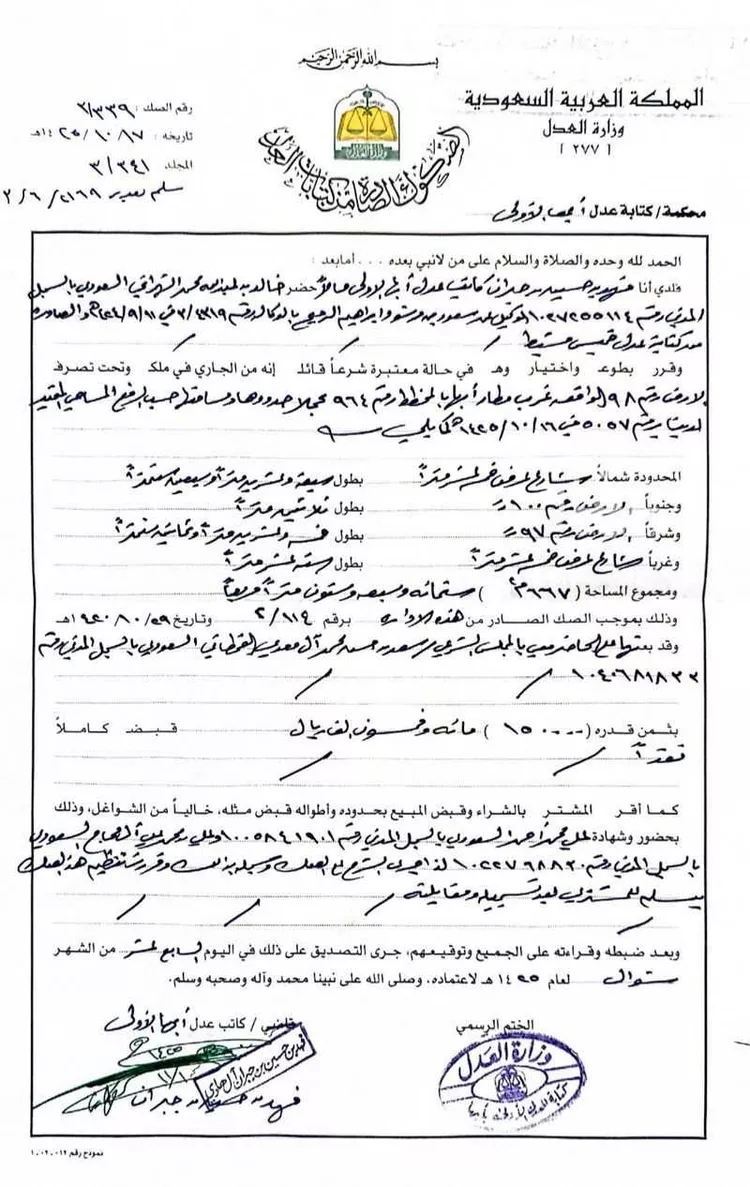 بسم الله الرحمن الرحيم
المملكة العربية السعودية
وزارة العدل
(٢٧٧)
محكمة / كتابة عدل أبها الأولى
الصكوك الصادرة من كتابات العدل
رقم الصك : ٢/٣٣٩
تاريخه : ١٧ / ١٠ / ١٤٢٥هـ
المجلد ٣/٣٤١
الحمد لله وحده والصلاة والسلام على من لانبي بعده ... أمابعد :
فلدي أنا فهد بن حسين بن جبران كاتب عدل أبها الأولى حضر خالد بن محمد الشهراني السعودي بالسجل
المدني رقم ١٠٢٧٢٥٥١١٤ الوكيل عن سعود بن وابراهيم بالوكالة رقم في والصادرة
من كتابة عدل خميس مشيط
وقرر بطوعه واختياره وهو في حالة معتبرة شرعاً قائلاً إنه من الجاري في ملك وتحت تصرف
الارض رقم ٩٨ الواقعة غرب مطار أبها بالمخطط رقم ٩٦٤ حدودها ومساحتها حسب الرفع المساحي المقيد
لدينا برقم ٥٠٥٧ في ١٦ / ١٠ / ١٤٢٥هـ كما يلي
المحدودة شمالاً: شارع عرض خمسة عشر متراً بطول سبعة وعشرين متراً وسبعين سنتمتراً
وجنوباً الارض رقم ١٠٠ بطول ثلاثين متراً
وشرقاً الارض رقم ٩٧ بطول خمسة وعشرين متراً وثمانين سنتمتراً
وغرباً شارع عرض خمسة عشر متراً بطول ستة عشر متراً
ومجموع المساحة (٦٦٧م٢) ستمائة وسبعة وستون متراً مربعاً
وذلك بموجب الصك الصادر من هذه الإدارة برقم ٢/١١٤ وتاريخ ٢٩ / ٨ / ١٤٢٠هـ
وقد بعتها على الحاضر معي بالمجلس الشرعي سعد بن حسن محمد آل القحطاني السعودي بالسجل المدني رقم
١٠٤٠٦٨١٨٣٣
بثمن قدره (١٥٠٠٠٠) مائة وخمسون الف ريال قبض كاملاً
نقداً
كما أقر المشتري بالشراء وقبض المبيع بحدوده وأطواله قبض مثله، خالياً من الشواغل، وذلك
بحضور وشهادة علي محمد أحمد السعودي بالسجل المدني رقم ١٠٠٥٨٤١٩٠١ وعلي محمد السعودي
بالسجل المدني رقم ١٠٢٢٧٦٨٨٣٠ لذا جرى الشرح على الصك وسجله بذلك وقررت تنظيم هذا الصك
يسلم للمشتري بعد تسجيله ومقابلته
وبعد ضبطه وقراءته على الجميع وتوقيعهم، جرى التصديق على ذلك في اليوم السابع عشر من الشهر
شوال لعام ١٤٢٥ هـ لاعتماده، وصلى الله على نبينا محمد وآله وصحبه وسلم.
الختم الرسمي
قاضي / كاتب عدل أبها الأولى
وزارة العدل
كتابة العدل الأولى بأبها
فهد بن حسين بن جبران آل
فهد بن حسين بن جبران
نموذج رقم ١٢.٠٢.٠١